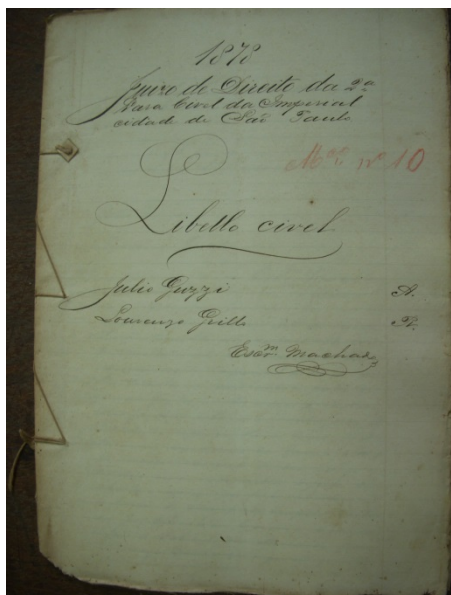 1878
Juizo de Direito da 2ª
Vara Civel da Imperial
cidade de São Paulo
Mç. nº 10
Libello civel
Julio Guzzi A.
Lourenzo Grillo R.
Escrm. Machado